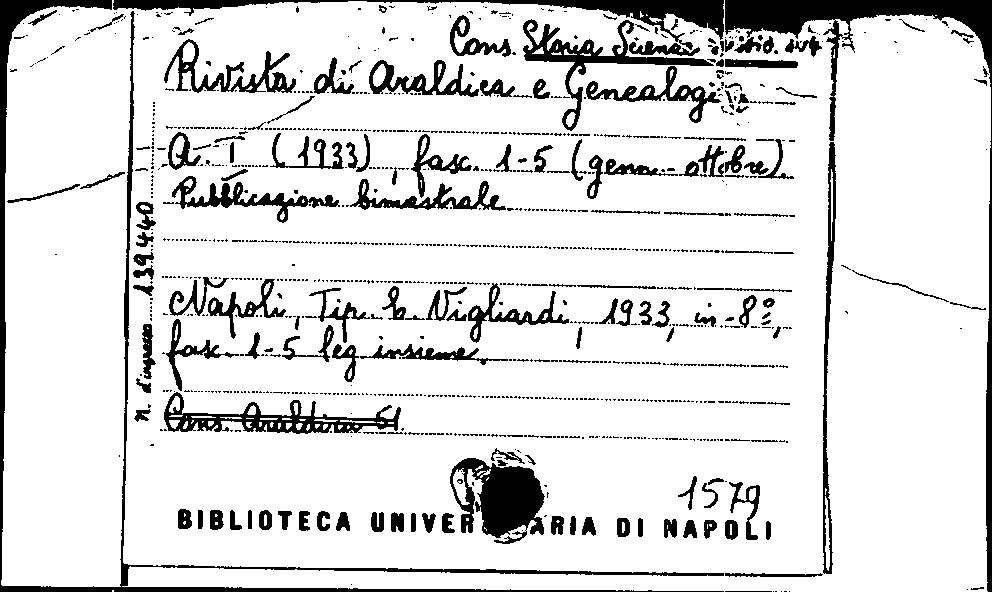 Cons. Storia Scienze
Rivista di Araldica e Genealogi
A. I (1933), fasc. 1-5 (genn.- ottobre).
Pubblicazione bimestrale.
Napoli, Tip. E. Vigliardi, 1933, in-8º,
fasc. 1-5 leg. insieme.
Cons. Araldica 61
N. d'ingresso 139.440
1579
BIBLIOTECA UNIVER ARIA DI NAPOLI